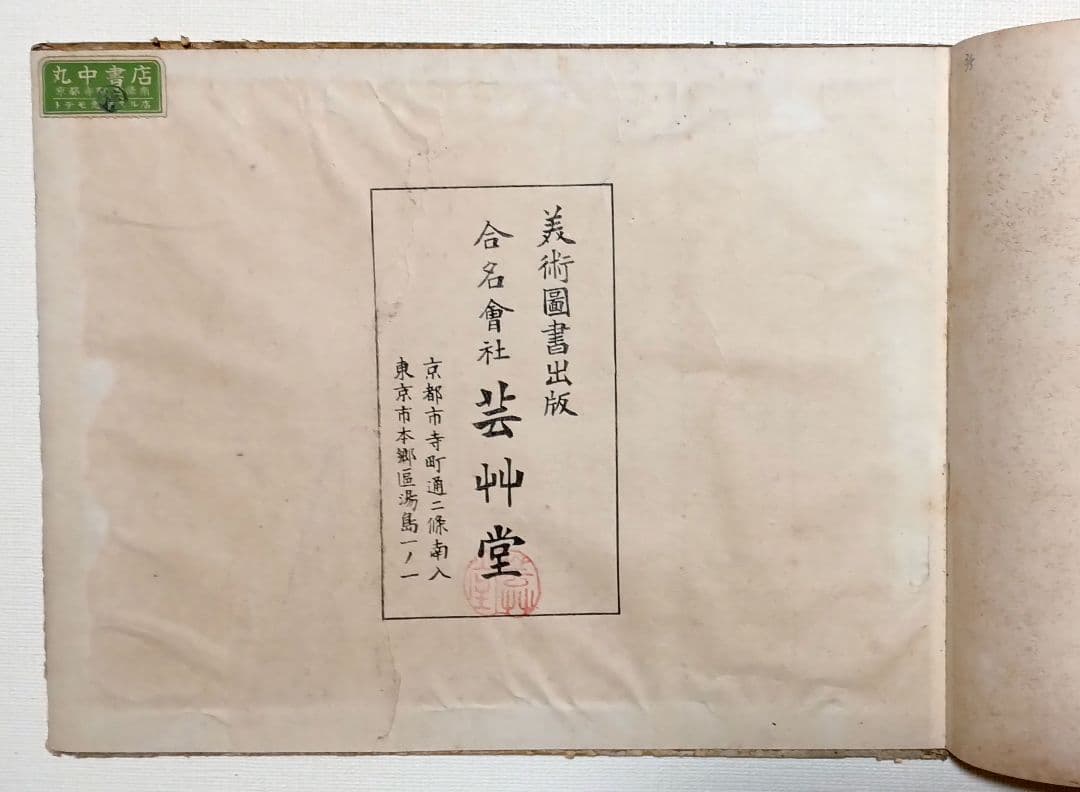 美術圖書出版
合名會社 芸艸堂
京都市寺町通二條南入
東京市本郷區湯島一ノ一
芸艸堂
丸中書店